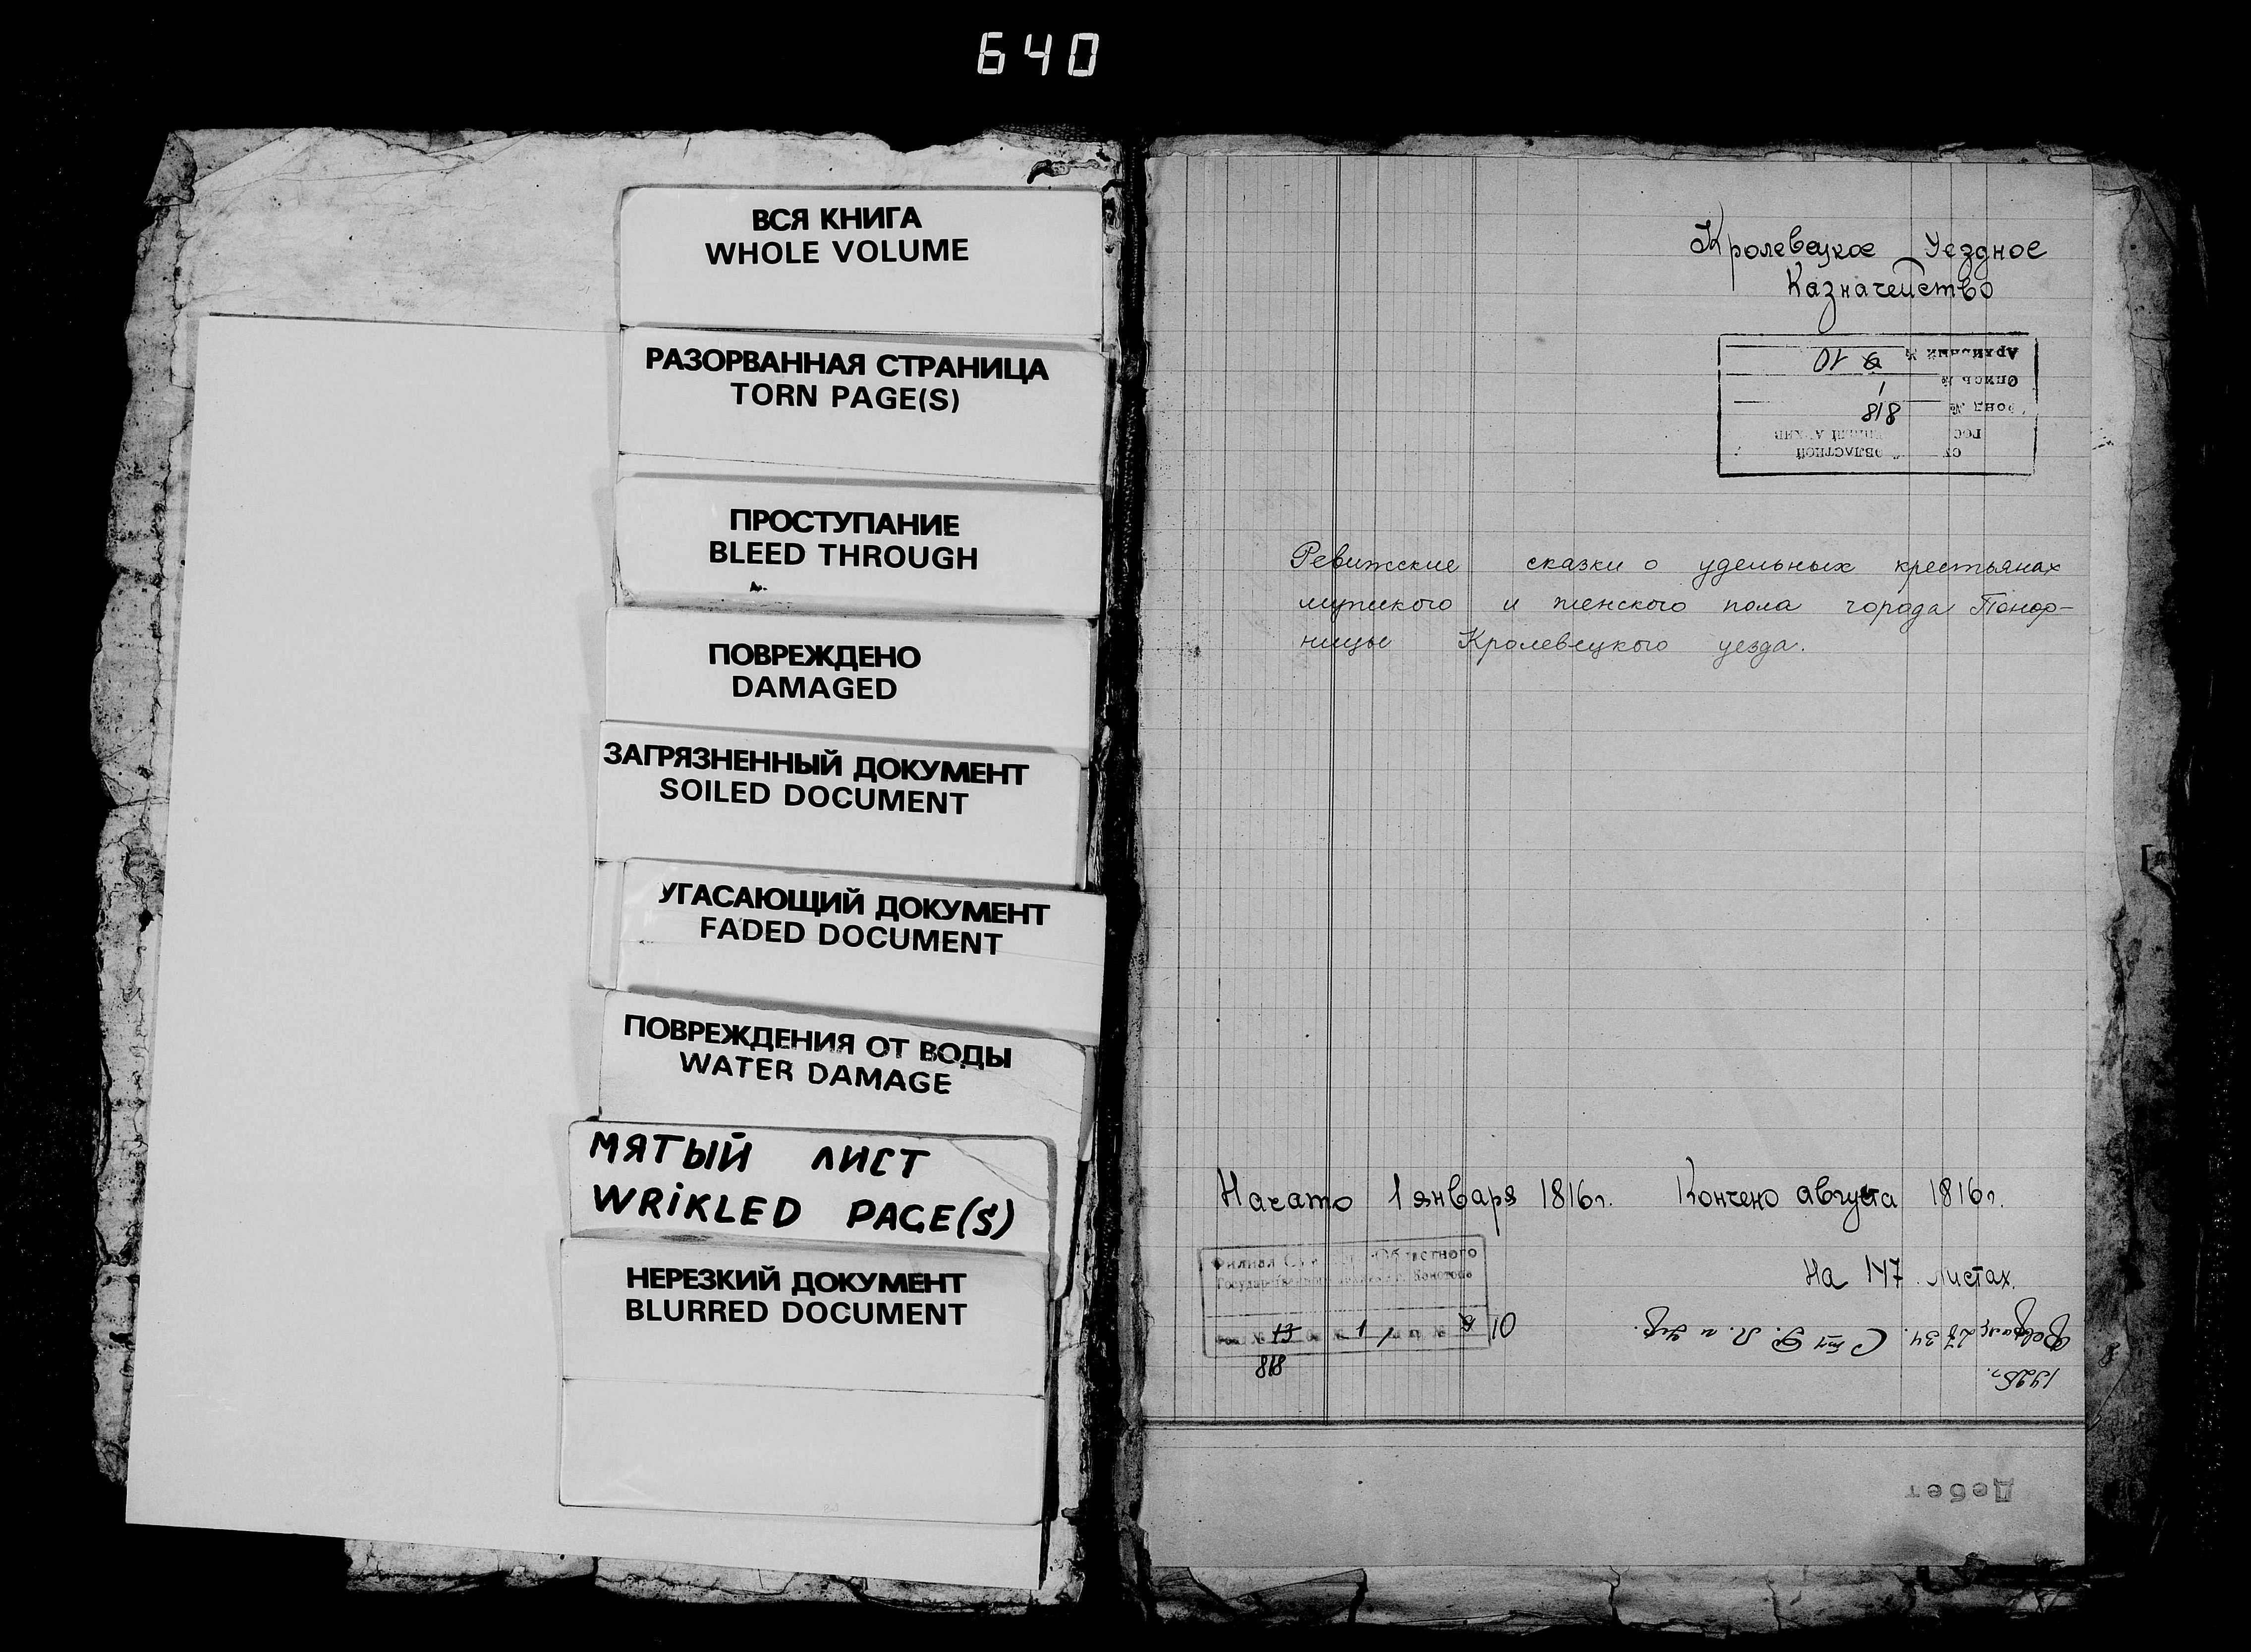 640
ВСЯ КНИГА
WHOLE VOLUME
РАЗОРВАННАЯ СТРАНИЦА
TORN PAGE(S)
ПРОСТУПАНИЕ
BLEED THROUGH
ПОВРЕЖДЕНО
DAMAGED
ЗАГРЯЗНЕННЫЙ ДОКУМЕНТ
SOILED DOCUMENT
УГАСАЮЩИЙ ДОКУМЕНТ
FADED DOCUMENT
ПОВРЕЖДЕНИЯ ОТ ВОДЫ
WATER DAMAGE
МЯТЫЙ ЛИСТ
WRIKLED PAGE(S)
НЕРЕЗКИЙ ДОКУМЕНТ
BLURRED DOCUMENT
Кролевецкое Уездное
Казначейство
ОБЛАСТНОЙ
818
Опись №
10
Ревижские сказки о удельных крестьянах
мужского и женского пола города Понор-
ницы Кролевецкого уезда.
Начато 1 января 1816г. Кончено августа 1816г.
На 147 листах.
Филиал Областного
13 1 10
818
1925г.
Дебет